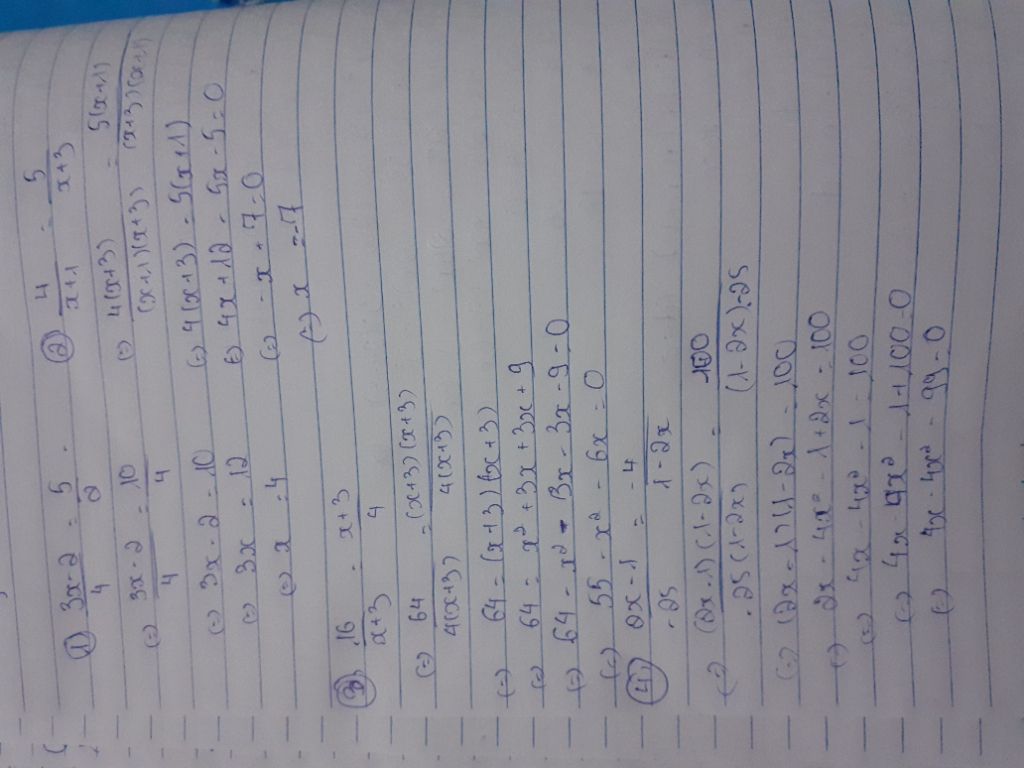 1) 3x-2/4 = 5/2
(=) 3x-2/4 = 10/4
(=) 3x-2 = 10
(=) 3x = 12
(=) x = 4
2) 4/x+1 = 5/x+3
(=) 4(x+3)/(x+1)(x+3) = 5(x+1)/(x+3)(x+1)
(=) 4(x+3) = 5(x+1)
(=) 4x+12 - 5x-5=0
(=) -x+7=0
(=) x=-7
3) 16/x+3 = x+3/4
(=) 64/4(x+3) = (x+3)(x+3)/4(x+3)
(=) 64=(x+3)(x+3)
(=) 64 = x²+3x+3x+9
(=) 64-x²-3x-3x-9=0
(=) 55-x²-6x=0
4) 2x-1/-25 = -4/1-2x
(=) (2x-1)(1-2x)/-25(1-2x) = 100/(1-2x).-25
(=) (2x-1)(1-2x)=100
(=) 2x-4x²-1+2x=100
(=) 4x-4x²-1=100
(=) 4x-4x²-1+100=0
(=) 4x-4x²-99=0